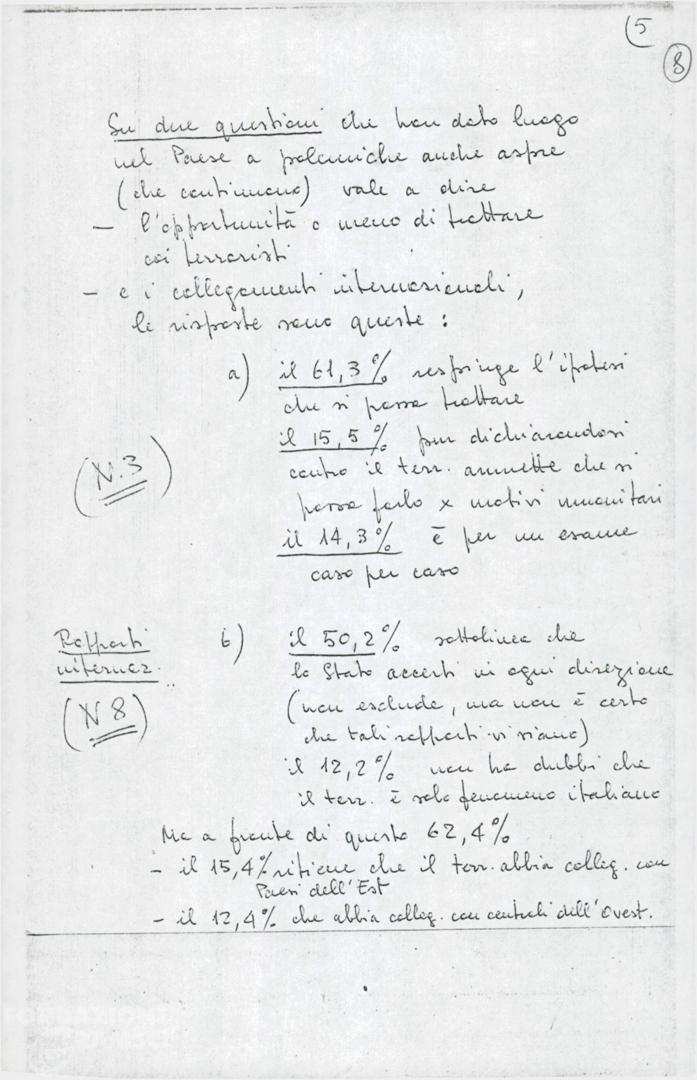 (5
8
Su due questioni che han dato luogo
nel Paese a polemiche anche aspre
(che continuano) vale a dire
— l'opportunità o meno di trattare
coi terroristi
— e i collegamenti internazionali,
le risposte sono queste :
a) il 61,3% respinge l'ipotesi
che si possa trattare
il 15,5% pur dichiarandosi
contro il terr. ammette che si
(N.3) possa farlo x motivi umanitari
il 14,3% è per un esame
caso per caso
Rapporti b) il 50,2% sottolinea che
internaz. lo Stato accerti in ogni direzione
(N 8) (non esclude, ma non è certo
che tali rapporti vi siano)
il 12,2% non ha dubbi che
il terr. è solo fenomeno italiano
Ma a fronte di questo 62,4%
- il 15,4% ritiene che il terr. abbia colleg. con
Paesi dell'Est
- il 12,4% che abbia colleg. con centrali dell'Ovest.